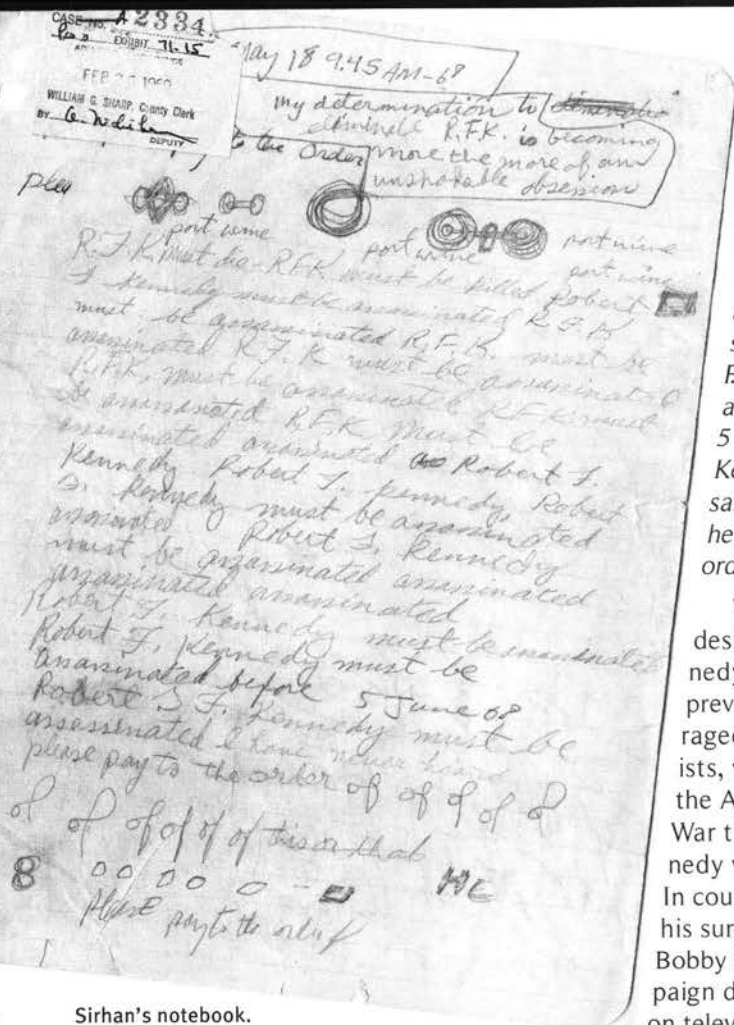 CASE No. A 2334
EXHIBIT 71.15
FEB
WILLIAM G. SHARP, County Clerk
BY
DEPUTY
May 18 9.45 AM-68
my determination to
eliminate R.F.K. is becoming
more the more of an
unshakable obsession
to the Order
port wine
port wine
port wine
port wine
R.F.K. must die - RFK must be killed Robert
F Kennedy must be assassinated R.F.K.
must be assassinated R.F.K. must be
assassinated R.F.K must be assassinated
R.F.K. must be assassinated R.F.K. must
be assassinated R.F.K Must be
assassinated assassinated Robert F.
Kennedy Robert F. Kennedy Robert
F. Kennedy must be assassinated
assassinated Robert F. Kennedy
must be assassinated assassinated
assassinated assassinated
Robert F. Kennedy must be assassinated
Robert F. Kennedy must be
assassinated before 5 June 68
Robert F. Kennedy must be
assassinated I have never heard
please pay to the order of of of of of
of of of of of of this or that
8 00 00 0
please pay to the order of
Sirhan's notebook.
5
he
des
nedy
prev
raged
ists,
the A
War t
nedy
In cou
his sur
Bobby
paign d
on telev